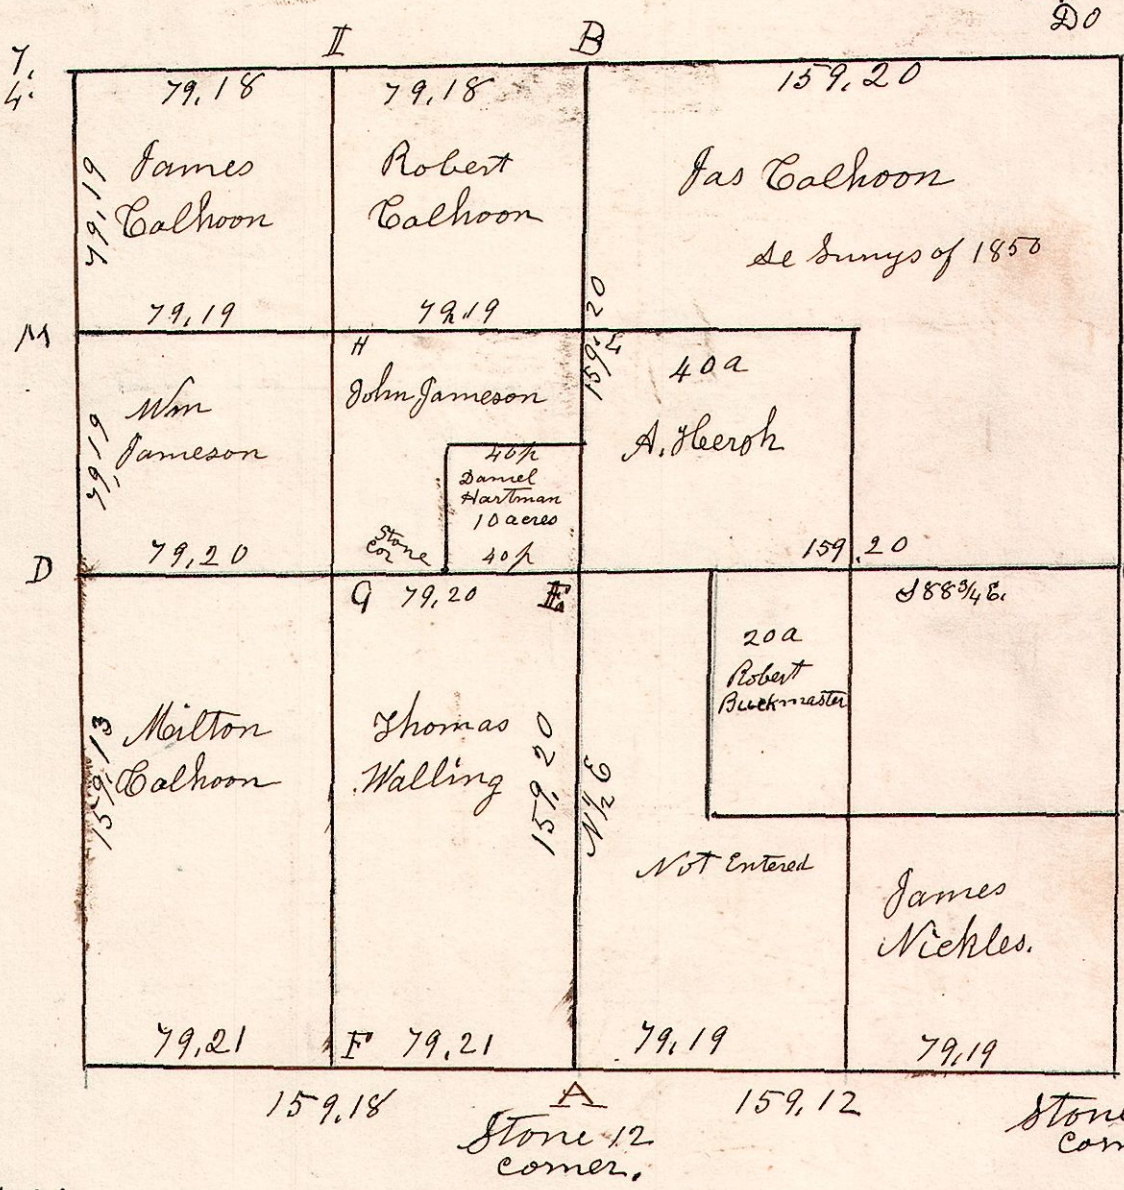 Do
I
B
7.
4.
79,18
79,18
159,20
James
Calhoon
79,19
Robert
Calhoon
Jas Calhoon
of 1850
79,19
79,19
159,20
M
H
L
Wm
Jameson
79,19
John Jameson
40 a
40p
Daniel
Hartman
10 acres
40p
Stone
cor
79,20
159,20
D
G
79,20
E
S88¾E.
20 a
Robert
Buckmaster
Milton
Calhoon
159,13
Thomas
Walling
159,20
N½E
Not Entered
James
Nickles.
79,21
F
79,21
79,19
79,19
159,18
A
159,12
Stone 12
corner.
Stone